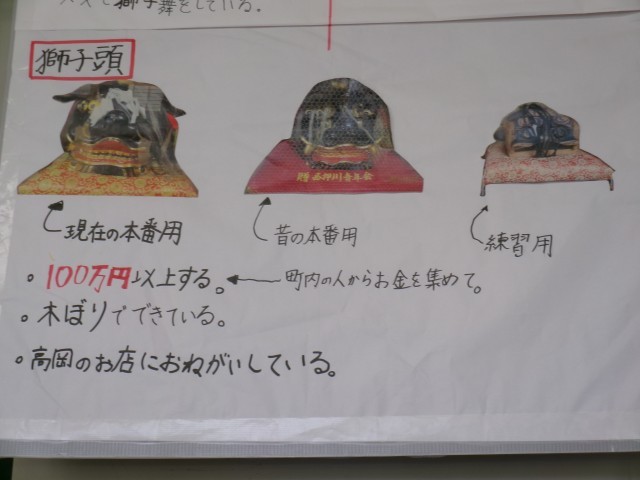 獅子舞をしている.
獅子頭
現在の本番用
昔の本番用
練習用
• 100万円以上する。 ← 町内の人からお金を集めて。
• 木ぼりでできている。
• 高岡のお店におねがいしている。